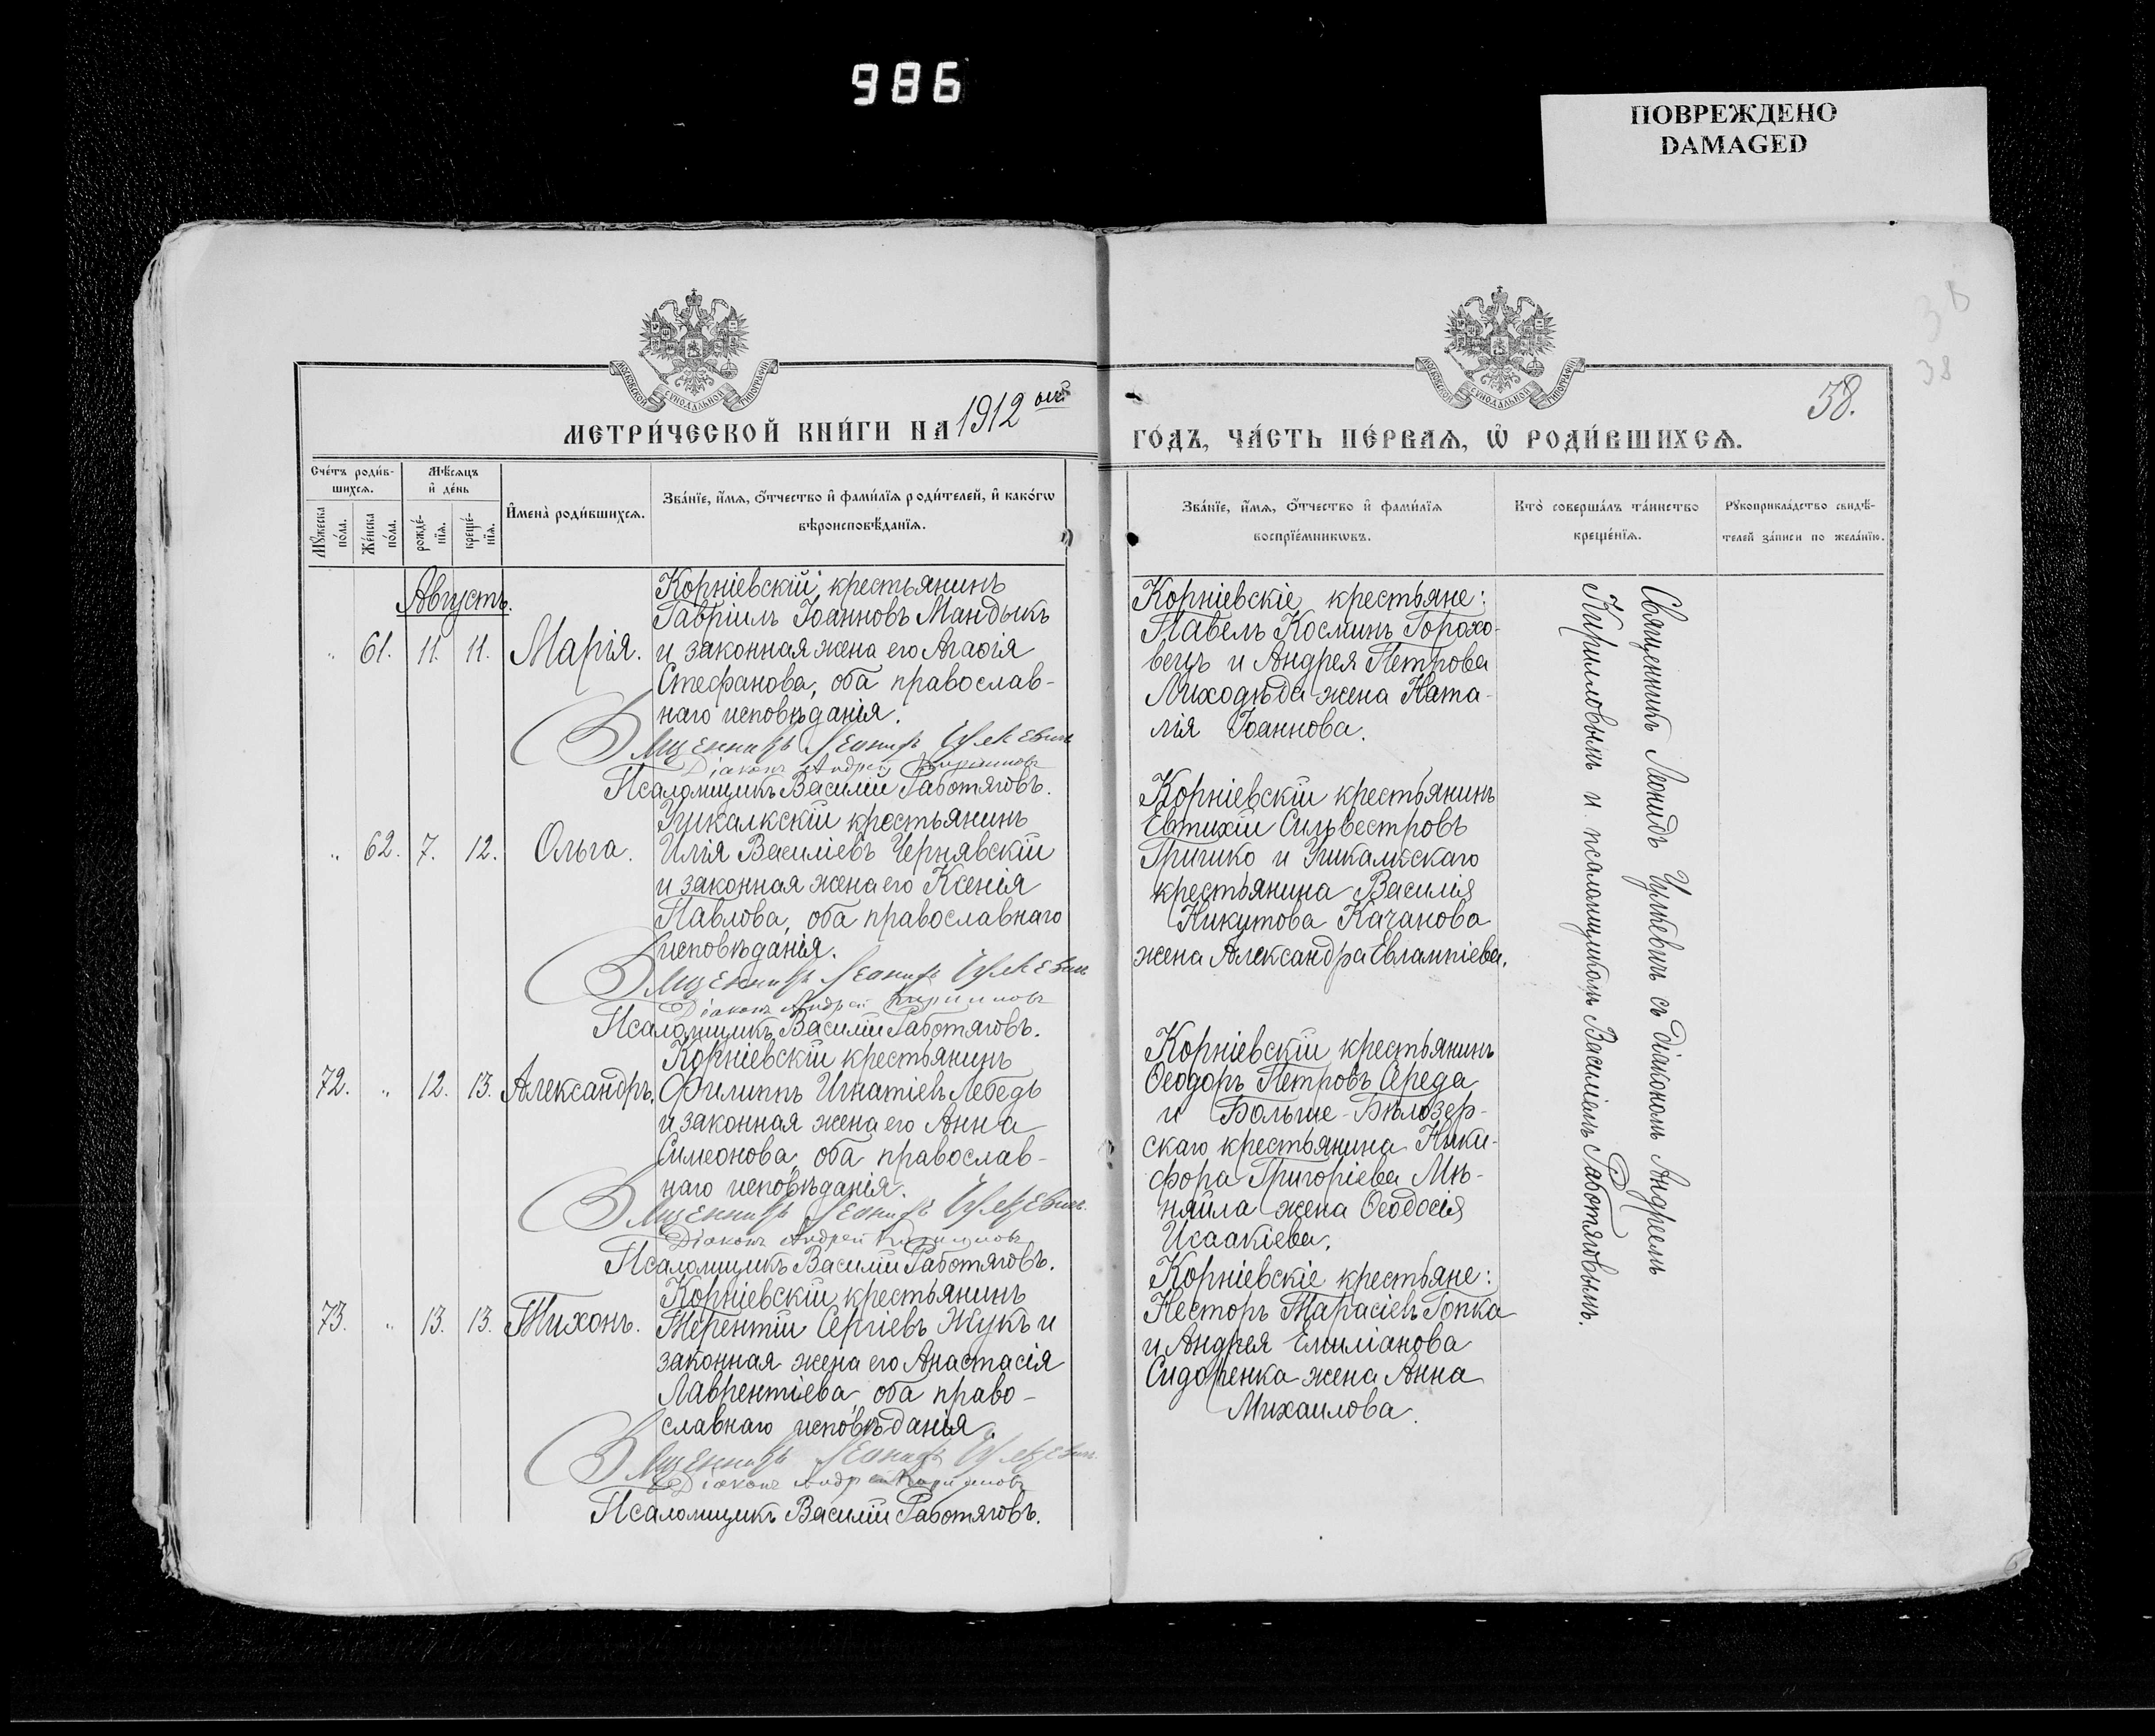 986
ПОВРЕЖДЕНО
DAMAGED
38
38
38.
МОСКОВСКОЙ СѴНОДАЛЬНОЙ ТИПОГРАФІИ
МОСКОВСКОЙ СѴНОДАЛЬНОЙ ТИПОГРАФІИ
МЕТРИ́ЧЕСКОЙ КНИ́ГИ НА 1912 ый
ГО́ДЪ, ЧА́СТЬ ПЕ́РВАѦ, Ѡ҆ РОДИ́ВШИХСѦ.
Сче́тъ роди́в-
шихсѧ.
Мѣ́сѧцъ
и҆ де́нь
Мꙋ́жеска
по́ла.
Же́нска
по́ла.
рожде́-
нїѧ.
креще́-
нїѧ.
И҆мена̀ роди́вшихсѧ.
Зва́нїе, и҆́мѧ, ѻ҆́тчество и҆ фами́лїѧ роди́телей, и҆ како́гѡ
вѣроисповѣ́данїѧ.
Зва́нїе, и҆́мѧ, ѻ҆́тчество и҆ фами́лїѧ
воспрїе́мникѡвъ.
Кто̀ соверша́лъ та́инство
креще́нїѧ.
Рꙋкоприкла́дство свидѣ́-
телей за́писи по жела́нїю.
Августъ.
„ 61. 11. 11. Марія.
Корніевскій крестьянинъ
Гавріилъ Іоанновъ Мандыкъ
и законная жена его Агаѳія
Стефанова, оба православ-
наго исповѣданія.
Священникъ Леонидъ Цулкевичъ
Діаконъ Андрей Кирилловъ
Псаломщикъ Василій Работяговъ.
Корніевскіе крестьяне:
Павелъ Косминъ Горохо-
вецъ и Андрея Петрова
Лиходѣда жена Ната-
лія Іоаннова.
„ 62. 7. 12. Ольга.
Учкалкскій крестьянинъ
Илія Василіевъ Чернявскій
и законная жена его Ксенія
Павлова, оба православнаго
исповѣданія.
Священникъ Леонидъ Цулкевичъ
Діаконъ Андрей Кирилловъ
Псаломщикъ Василій Работяговъ.
Корніевскій крестьянинъ
Евтихій Сильвестровъ
Гришко и Учкалкскаго
крестьянина Василія
Никитова Качанова
жена Александра Евлампіева.
72. „ 12. 13. Александръ.
Корніевскій крестьянинъ
Филиппъ Игнатіевъ Лебедь
и законная жена его Анна
Симеонова, оба православ-
наго исповѣданія.
Священникъ Леонидъ Цулкевичъ.
Діаконъ Андрей Кирилловъ
Псаломщикъ Василій Работяговъ.
Корніевскій крестьянинъ
Ѳеодоръ Петровъ Середа
и Больше-Бѣлозер-
скаго крестьянина Ники-
фора Григоріева Мѣ-
няйла жена Ѳеодосія
Исаакіева.
73. „ 13. 13. Тихонъ.
Корніевскій крестьянинъ
Терентій Сергіевъ Жукъ и
законная жена его Анастасія
Лаврентіева, оба право-
славнаго исповѣданія.
Священникъ Леонидъ Цулкевичъ.
Діаконъ Андрей Кирилловъ
Псаломщикъ Василій Работяговъ.
Корніевскіе крестьяне:
Несторъ Тарасіевъ Гопка
и Андрея Емиліанова
Сидоренка жена Анна
Михаилова.
Священникъ Леонидъ Цулкевичъ съ діакономъ Андреемъ
Кирилловымъ и псаломщикомъ Василіемъ Работяговымъ.